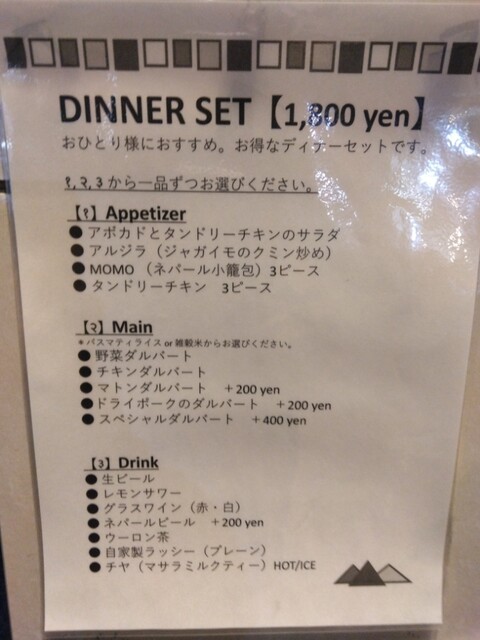 DINNER SET【1,800 yen】
おひとり様におすすめ。お得なディナーセットです。
१, २, ३から一品ずつお選びください。
【१】Appetizer
●アボカドとタンドリーチキンのサラダ
●アルジラ（ジャガイモのクミン炒め）
●MOMO （ネパール小籠包）3ピース
●タンドリーチキン 3ピース
【२】Main
＊バスマティライス or 雑穀米からお選びください。
●野菜ダルバート
●チキンダルバート
●マトンダルバート ＋200 yen
●ドライポークのダルバート ＋200 yen
●スペシャルダルバート ＋400 yen
【३】Drink
●生ビール
●レモンサワー
●グラスワイン（赤・白）
●ネパールビール ＋200 yen
●ウーロン茶
●自家製ラッシー（プレーン）
●チヤ（マサラミルクティー）HOT/ICE